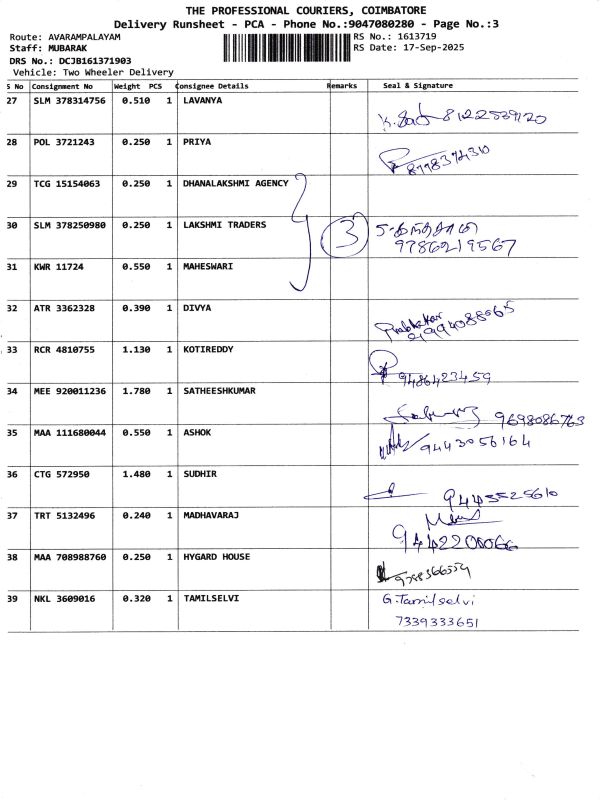 THE PROFESSIONAL COURIERS, COIMBATORE
Delivery Runsheet - PCA - Phone No.:9047080280 - Page No.:3
Route: AVARAMPALAYAM RS No.: 1613719
Staff: MUBARAK RS Date: 17-Sep-2025
DRS No.: DCJB161371903
Vehicle: Two Wheeler Delivery
S No Consignment No Weight PCS Consignee Details Remarks Seal & Signature
27 SLM 378314756 0.510 1 LAVANYA
28 POL 3721243 0.250 1 PRIYA
8798374310
29 TCG 15154063 0.250 1 DHANALAKSHMI AGENCY
30 SLM 378250980 0.250 1 LAKSHMI TRADERS 3
9786219567
31 KWR 11724 0.550 1 MAHESWARI
32 ATR 3362328 0.390 1 DIVYA
Prabhakar
33 RCR 4810755 1.130 1 KOTIREDDY
9486423459
34 MEE 920011236 1.780 1 SATHEESHKUMAR
9698086763
35 MAA 111680044 0.550 1 ASHOK
9443056164
36 CTG 572950 1.480 1 SUDHIR
9443525610
37 TRT 5132496 0.240 1 MADHAVARAJ
9442200066
38 MAA 708988760 0.250 1 HYGARD HOUSE
9788366559
39 NKL 3609016 0.320 1 TAMILSELVI G.Tamilselvi
7339333651